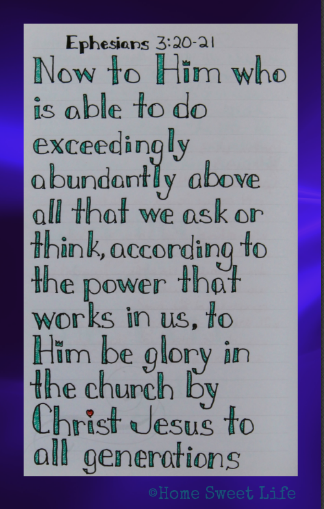 Ephesians 3:20-21
Now to Him who
is able to do
exceedingly
abundantly above
all that we ask or
think, according to
the power that
works in us, to
Him be glory in
the church by
Christ Jesus to
all generations
©Home Sweet Life